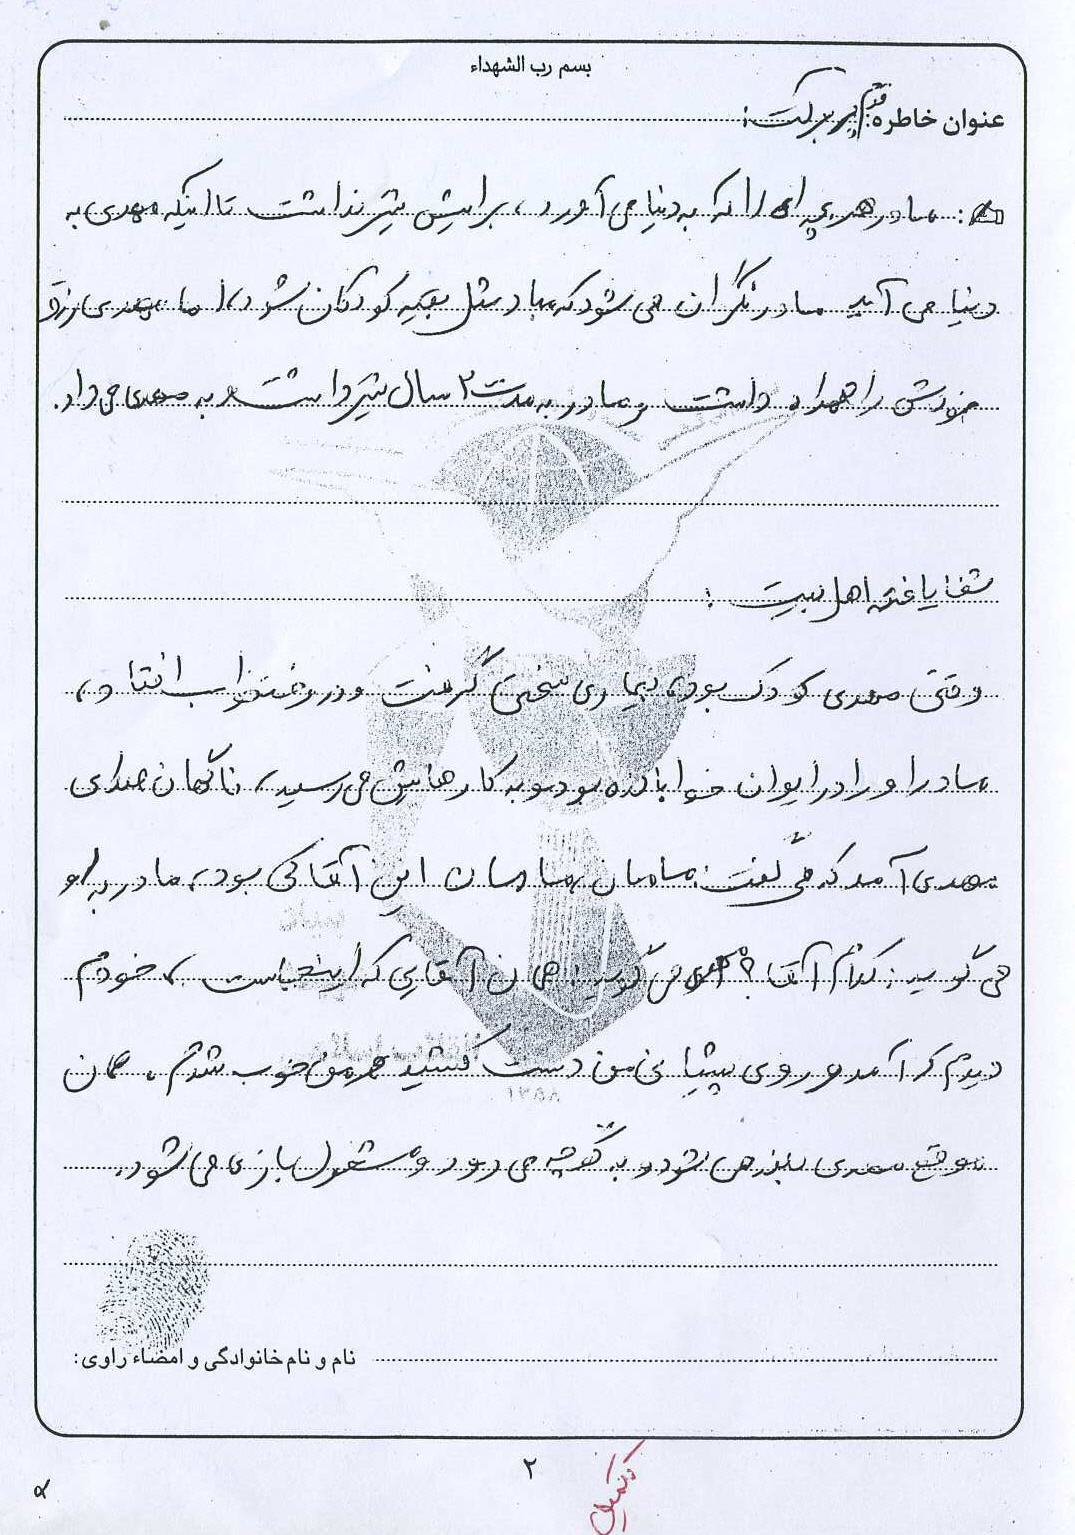 بسم رب الشهداء
عنوان خاطره: قدم پر برکت:
: مادر هر بچه ای را که به دنیا می آورد، برایش شیر نداشت تا اینکه مهدی به
دنیا می آید مادر نگران می شود که مبادا مثل بقیه کودکان شود، اما مهدی رزق
خودش را همراه داشت و مادر به مدت ۲ سال شیر داشت و به مهدی می داد.
شفا یافته اهل بیت :
وقتی مهدی کودک بود، بیماری سختی گرفت و در رختخواب افتاد،
مادر او را در ایوان خوابانده بود و به کارهایش می رسید، ناگهان صدای
مهدی آمد که می گفت: مامان، مامان این آقا کی بود، مادر به او
می گوید: کدام آقا؟ مهدی می گوید: همان آقایی که اینجاست، خودم
دیدم که آمد و روی پیشانی من دست کشید و من خوب شدم. همان
موقع مهدی بلند می شود و به کوچه می رود و مشغول بازی می شود.
نام و نام خانوادگی و امضاء راوی:
۱۳۵۸
۲
تکمیل